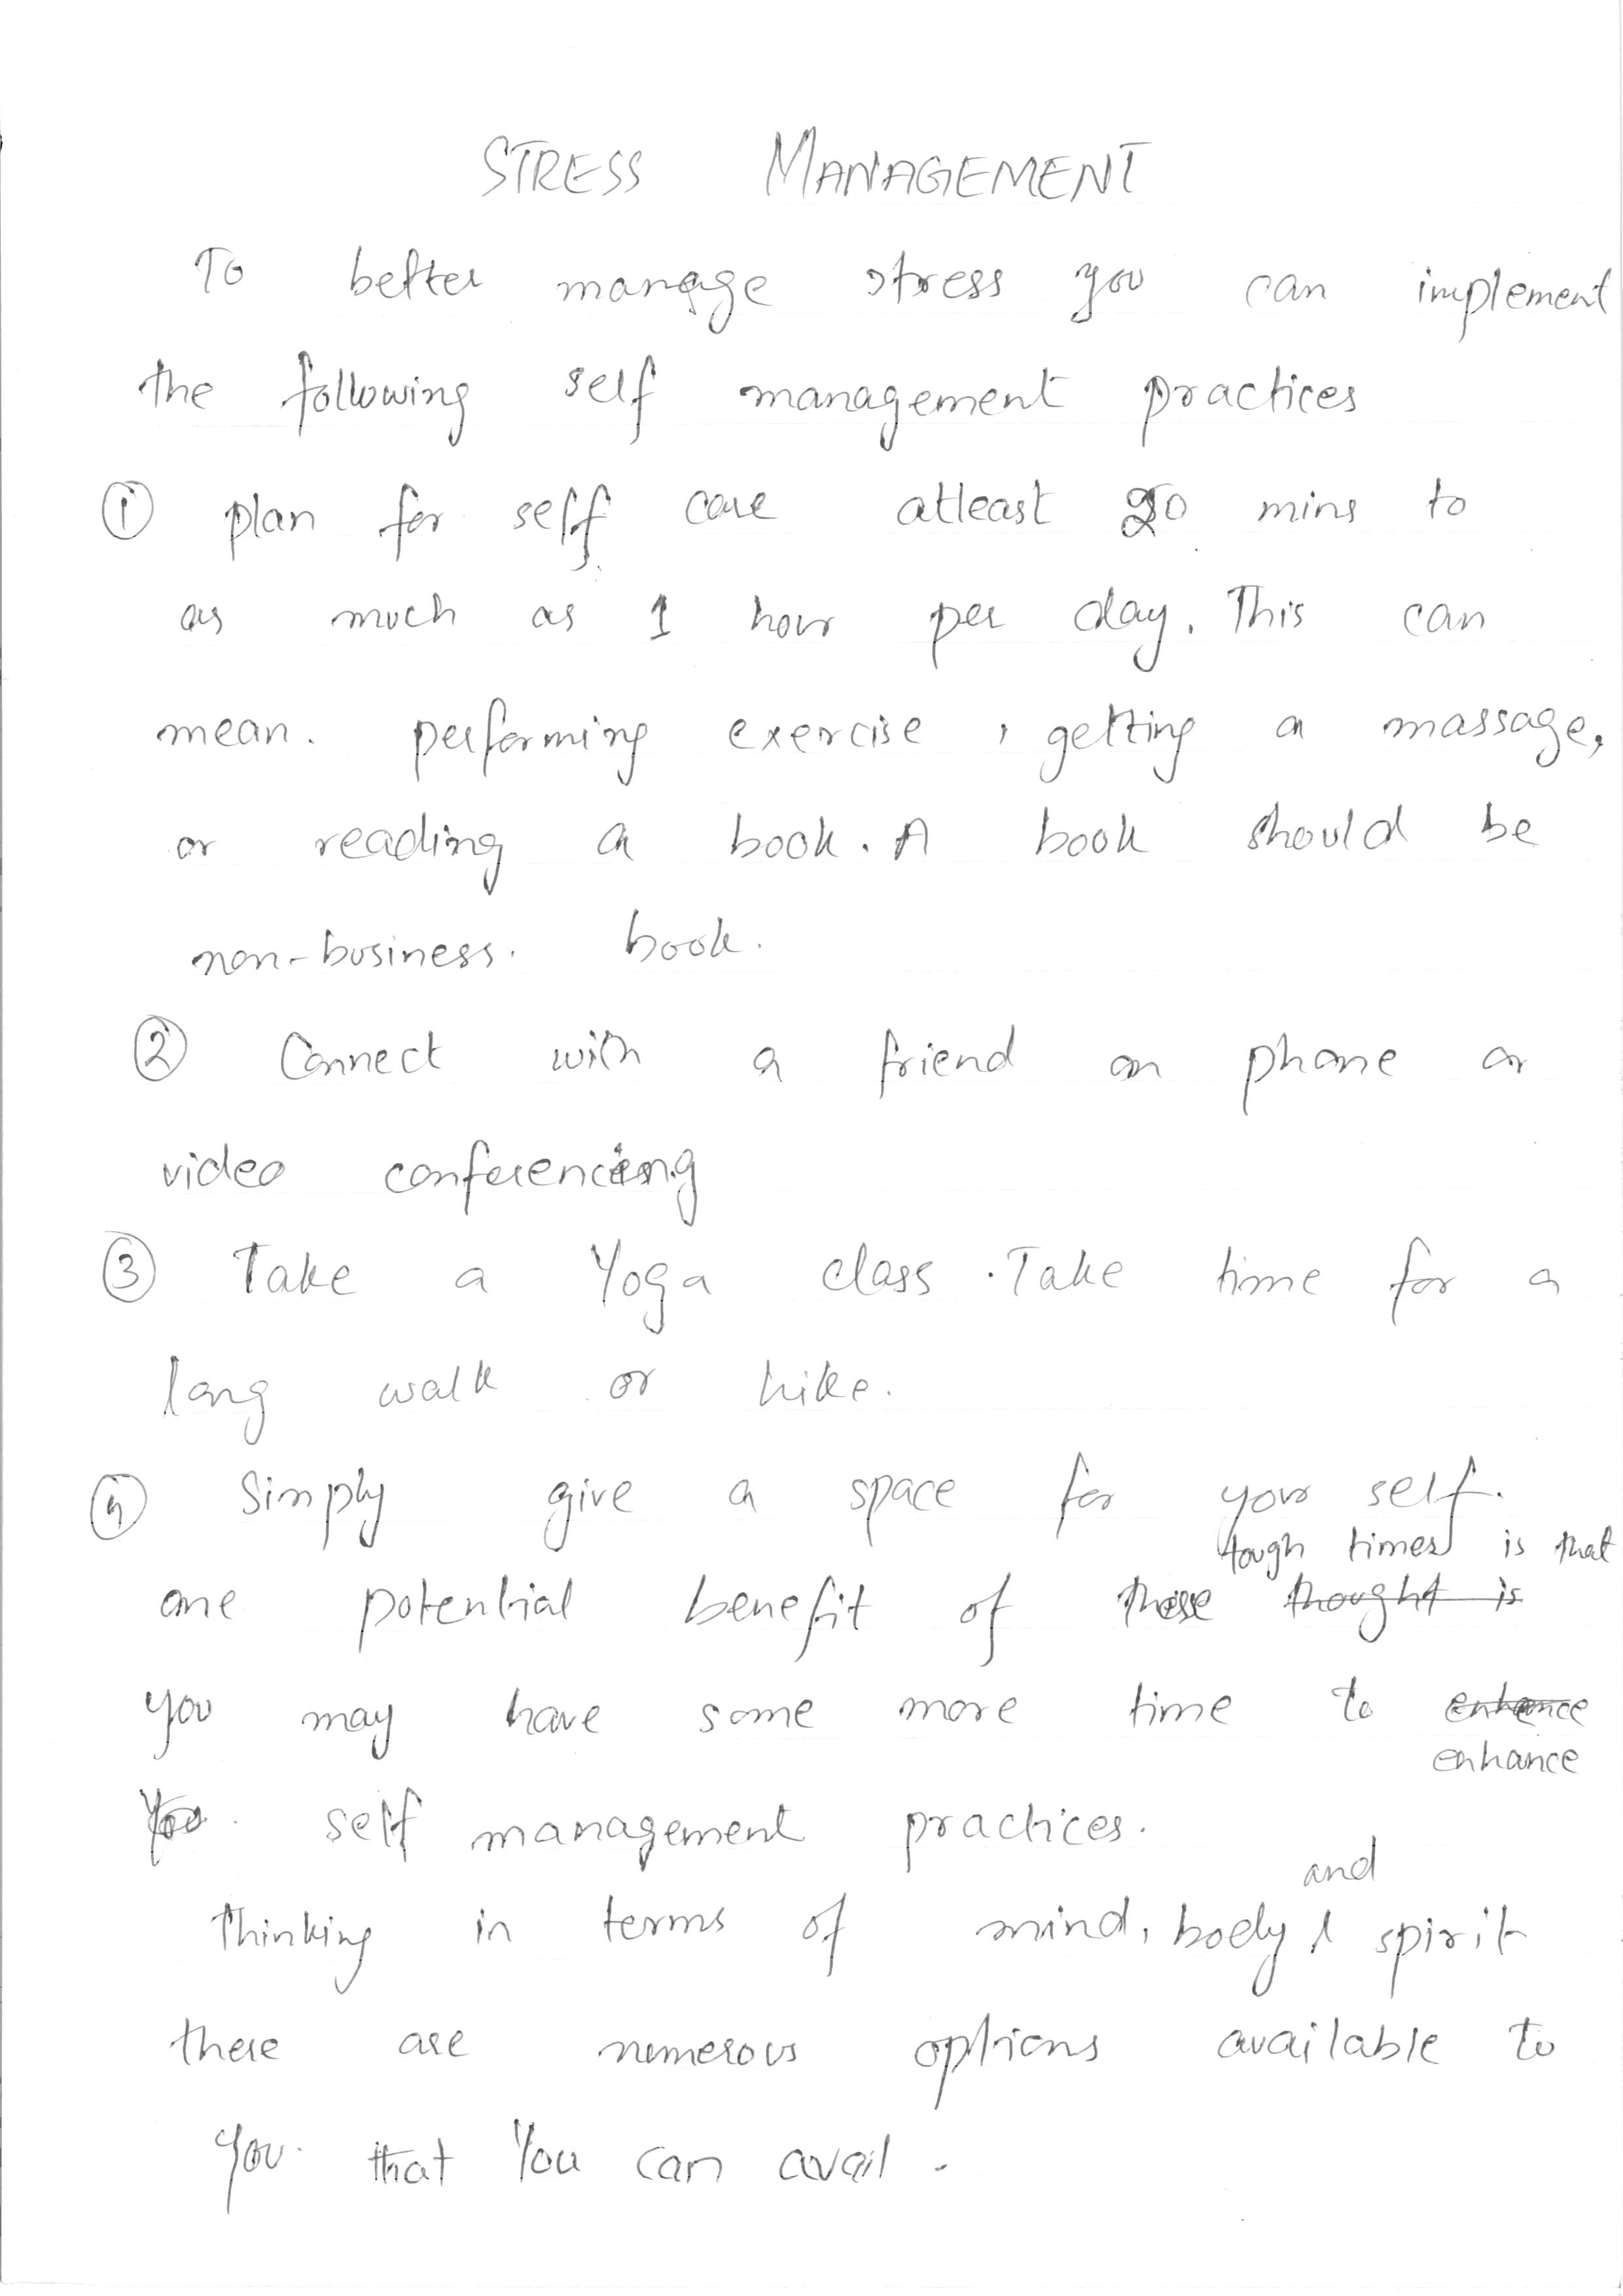 STRESS MANAGEMENT
To better manage stress you can implement
the following self management practices
① plan for self care atleast 20 mins to
as much as 1 hour per day. This can
mean. performing exercise, getting a massage,
or reading a book. A book should be
non-business. book.
② Connect with a friend on phone or
video conferencing
③ Take a Yoga class. Take time for a
long walk or hike.
④ Simply give a space for your self.
tough times is that
one potential benefit of these thought is
you may have some more time to enhence
enhance
You. self management practices.
and
Thinking in terms of mind, body & spirit
there are numerous options available to
you. that You can avail.